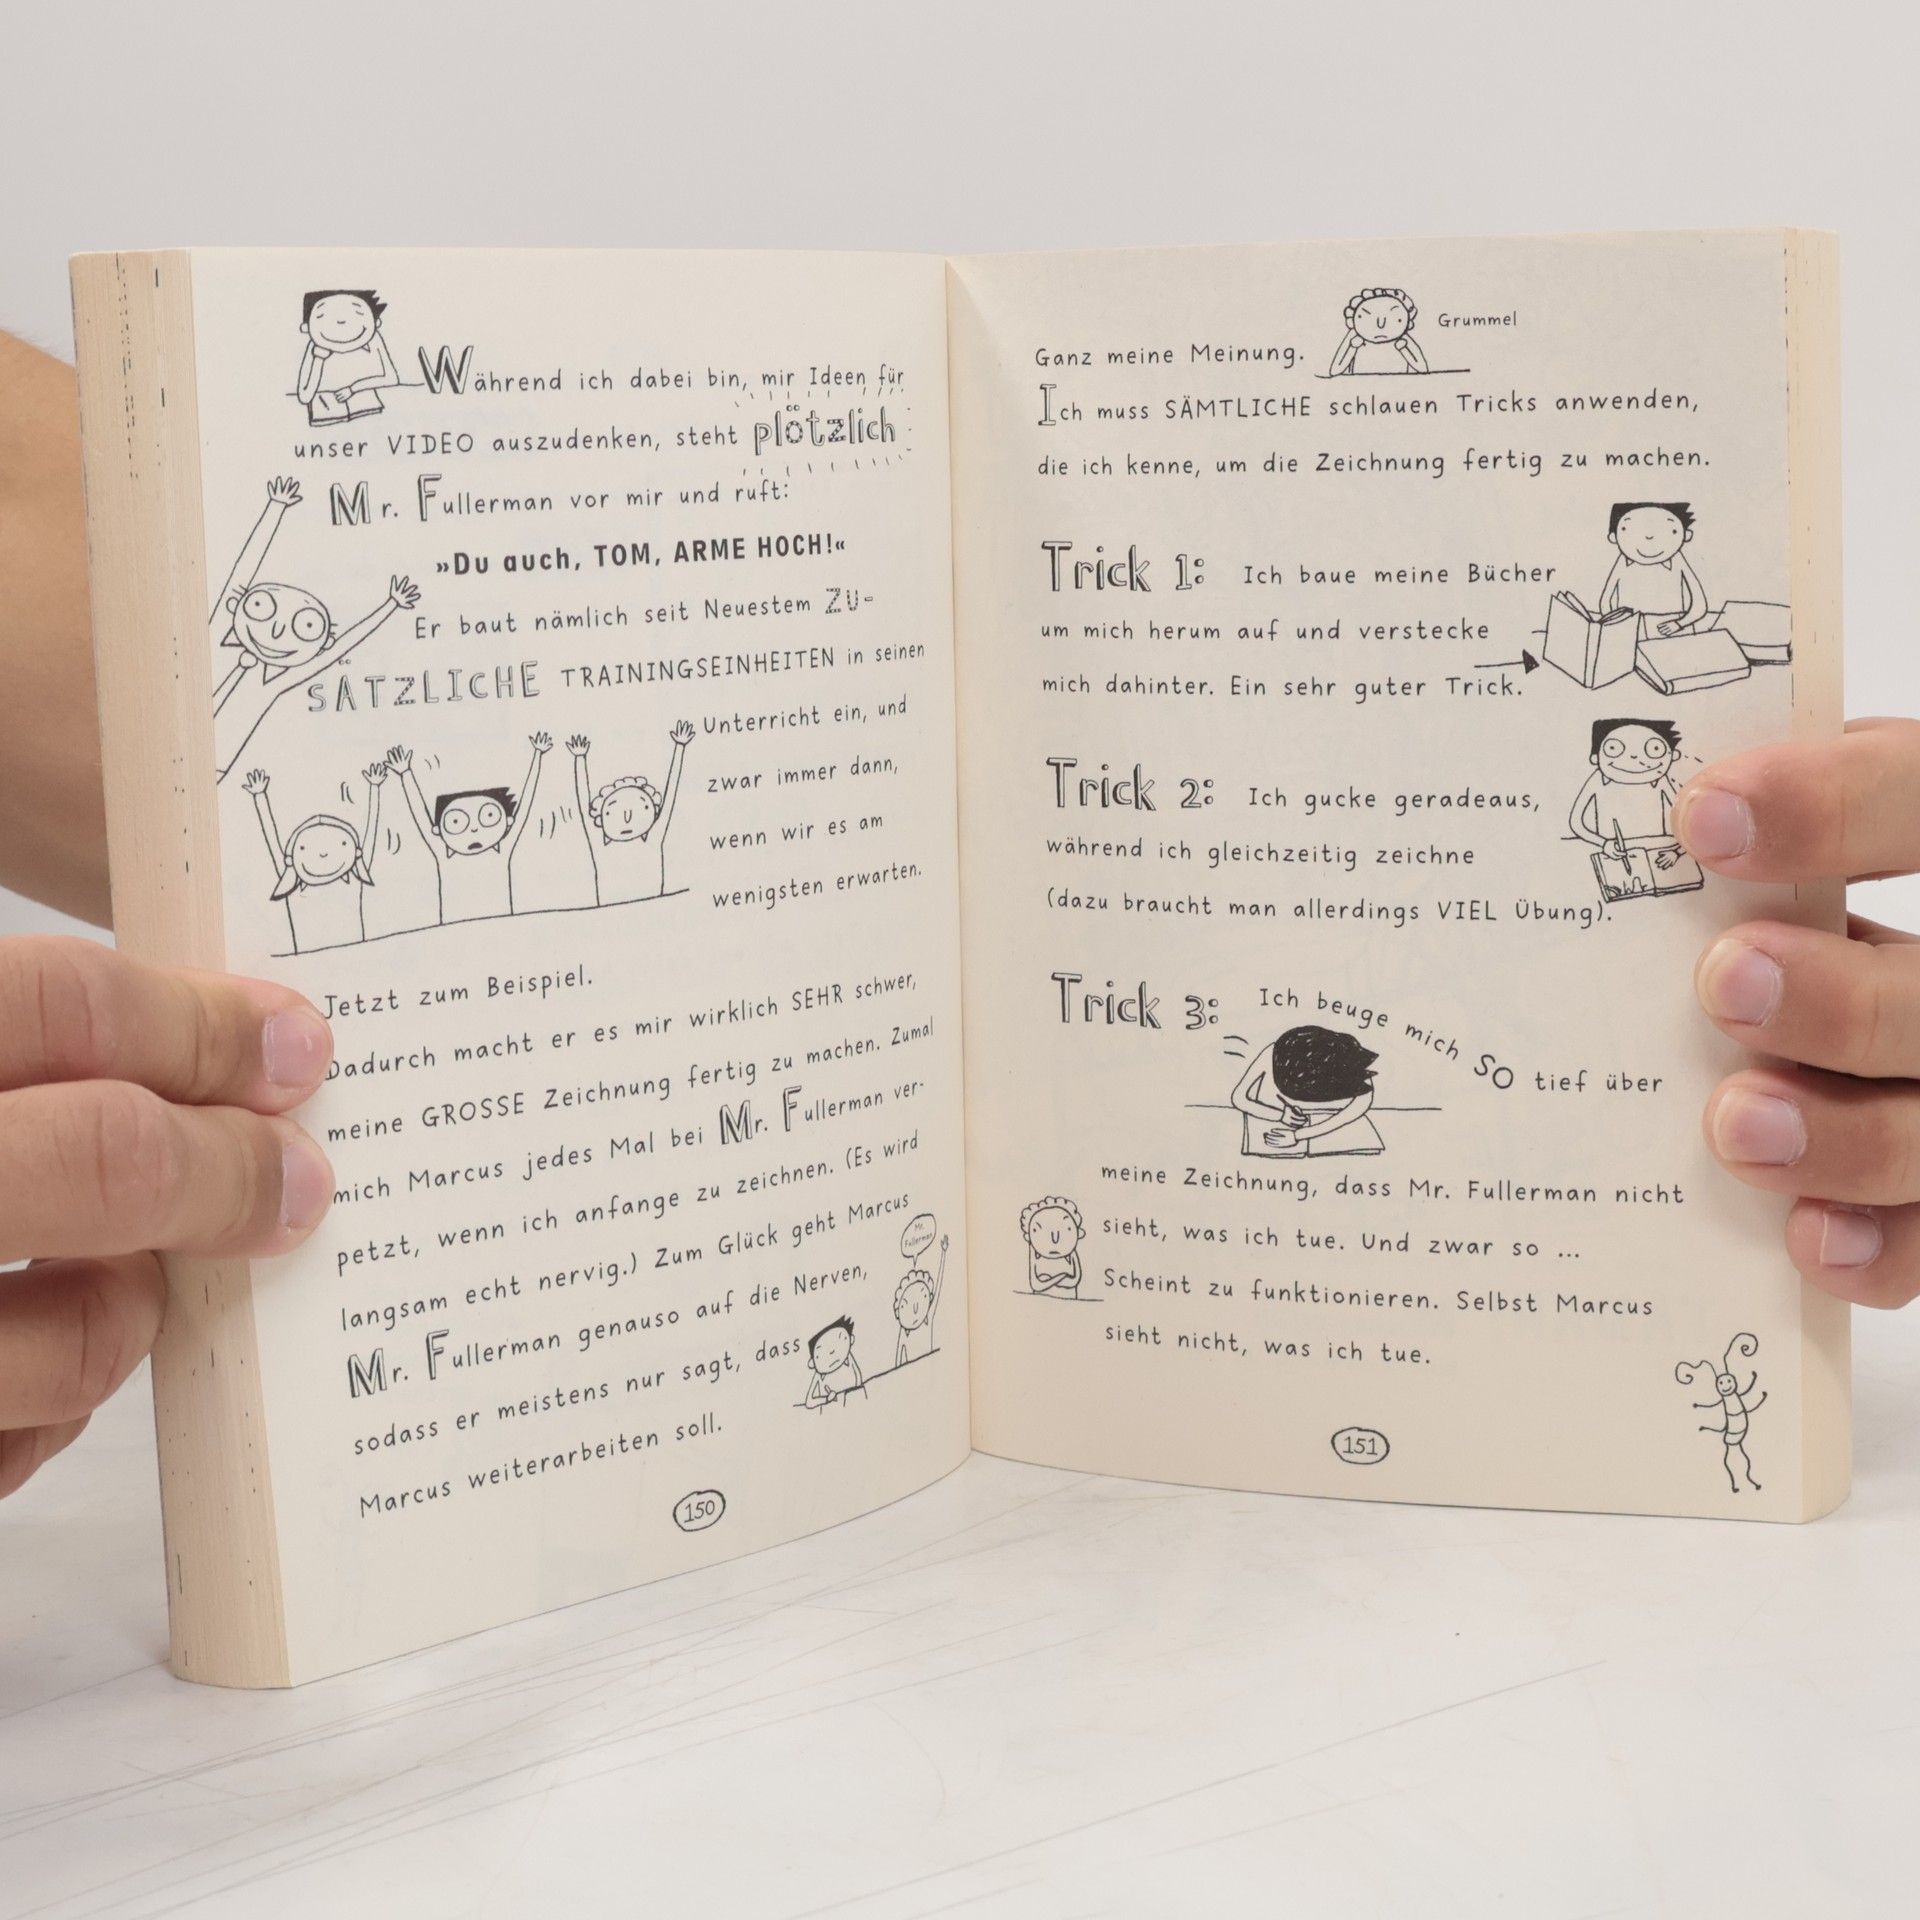 Während ich dabei bin, mir Ideen für
unser VIDEO auszudenken, steht plötzlich
Mr. Fullerman vor mir und ruft:
»Du auch, TOM, ARME HOCH!«
Er baut nämlich seit Neuestem ZU-
SÄTZLICHE TRAININGSEINHEITEN in seinen
Unterricht ein, und
zwar immer dann,
wenn wir es am
wenigsten erwarten.
Jetzt zum Beispiel.
Dadurch macht er es mir wirklich SEHR schwer,
meine GROSSE Zeichnung fertig zu machen. Zumal
mich Marcus jedes Mal bei Mr. Fullerman ver-
petzt, wenn ich anfange zu zeichnen. (Es wird
langsam echt nervig.) Zum Glück geht Marcus
Mr. Fullerman genauso auf die Nerven,
sodass er meistens nur sagt, dass
Marcus weiterarbeiten soll.
Mr.
Fullerman
150
Grummel
Ganz meine Meinung.
Ich muss SÄMTLICHE schlauen Tricks anwenden,
die ich kenne, um die Zeichnung fertig zu machen.
Trick 1: Ich baue meine Bücher
um mich herum auf und verstecke
mich dahinter. Ein sehr guter Trick.
Trick 2: Ich gucke geradeaus,
während ich gleichzeitig zeichne
(dazu braucht man allerdings VIEL Übung).
Trick 3: Ich beuge mich SO tief über
meine Zeichnung, dass Mr. Fullerman nicht
sieht, was ich tue. Und zwar so ...
Scheint zu funktionieren. Selbst Marcus
sieht nicht, was ich tue.
151